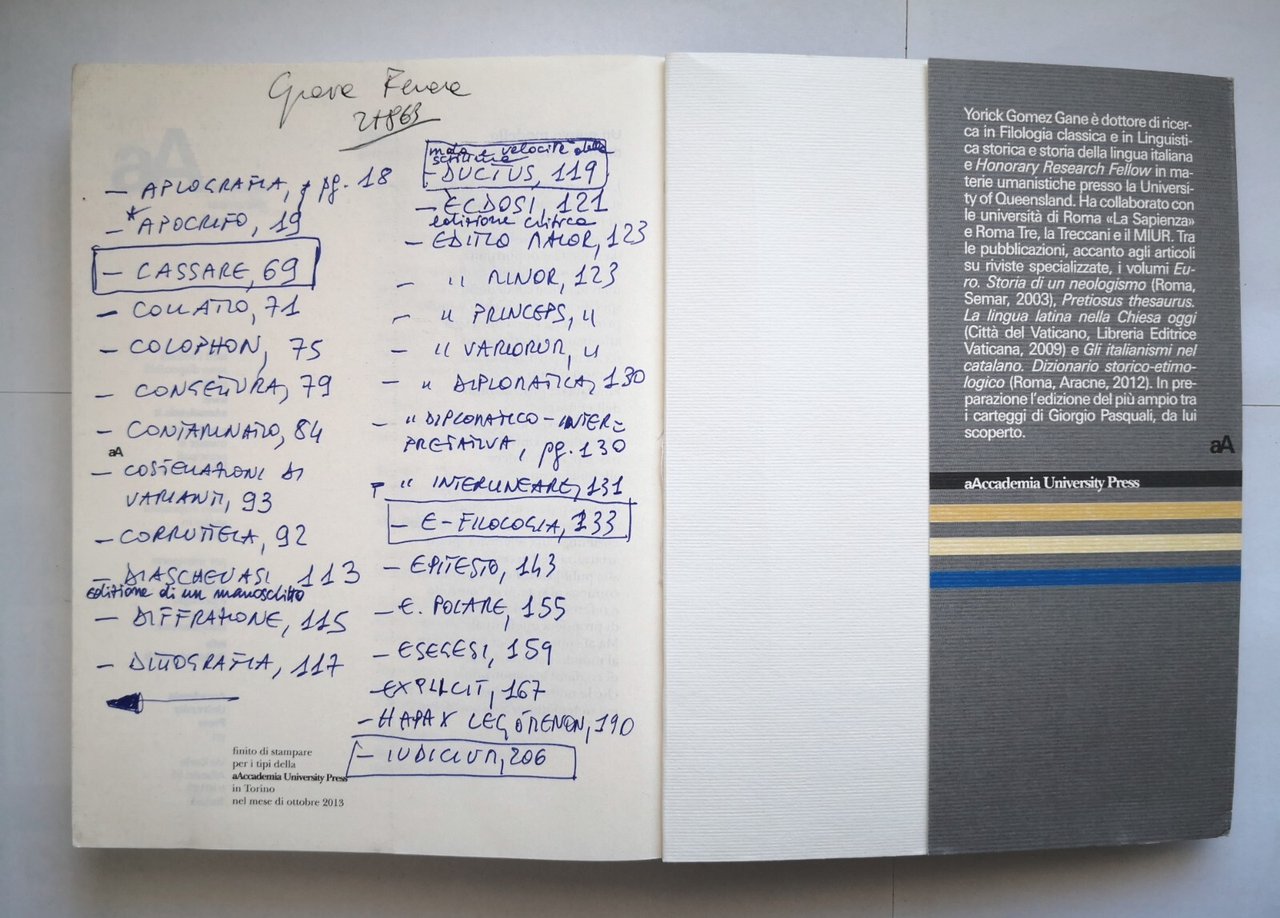 - APLOGRAFIA, pg. 18
- *APOCRIFO, 19
- CASSARE, 69
- COLLATIO, 71
- COLOPHON, 75
CONGETTURA, 79
- CONTAMINATIO, 84
aA
- COSTELLAZIONI DI
VARIANTI, 93
- CORRUTTELA, 92
- DIASCHEUASI 113
edizione di un manoscritto
- DIFFRAZIONE, 115
- DITTOGRAFIA, 117
finito di stampare
per i tipi della
aAccademia University Press
in Torino
nel mese di ottobre 2013
modo e velocità della
scrittura
- DUCTUS, 119
- ECDOSI, 121
edizione critica
- EDITIO MAIOR, 123
- " MINOR, 123
- " PRINCEPS, "
- " VARIORUM, "
- " DIPLOMATICA, 130
- " DIPLOMATICO-INTER=
PRETATIVA, pg. 130
" INTERLINEARE, 131
- E-FILOLOGIA, 133
- EPITESTO, 143
- E. POLARE, 155
- ESEGESI, 159
- EXPLICIT, 167
- HAPAX LEGÓMENON, 190
- IUDICIUM, 206
Yorick Gomez Gane è dottore di ricer-
ca in Filologia classica e in Linguisti-
ca storica e storia della lingua italiana
e Honorary Research Fellow in ma-
terie umanistiche presso la Universi-
ty of Queensland. Ha collaborato con
le università di Roma «La Sapienza»
e Roma Tre, la Treccani e il MIUR. Tra
le pubblicazioni, accanto agli articoli
su riviste specializzate, i volumi Eu-
ro. Storia di un neologismo (Roma,
Semar, 2003), Pretiosus thesaurus.
La lingua latina nella Chiesa oggi
(Città del Vaticano, Libreria Editrice
Vaticana, 2009) e Gli italianismi nel
catalano. Dizionario storico-etimo-
logico (Roma, Aracne, 2012). In pre-
parazione l'edizione del più ampio tra
i carteggi di Giorgio Pasquali, da lui
scoperto.
aA
aAccademia University Press